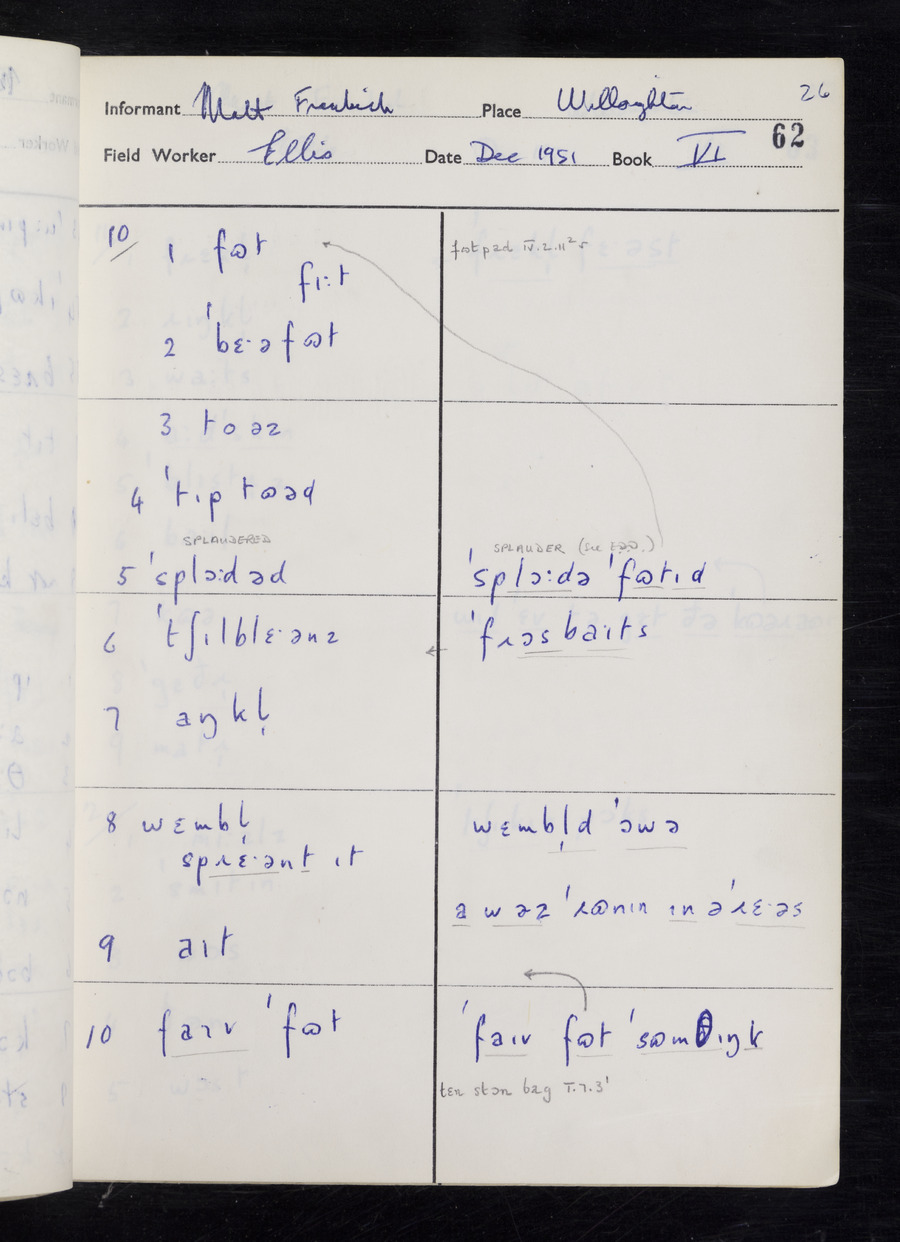 Informant Matt Frankish Place Willoughton 26
62
Field Worker Ellis Date Dec 1951 Book VI
10/ 1 fɷt
fɪ:t
2 ˈbɛ·əfɷt
fɷtpad IV.2.11² r
3 toəz
4 ˈtɪptɷəd
SPLAUDERED
5 ˈsplɔ:dəd
SPLAUDER (see EDD.)
ˈsplɔ:də ˈfɷtɪd
6 ˈtʃɪlblɛ·ənz
ˈfɹɔsbaɪts
7 aŋkl̩
8 wɛmbl̩
spɹɛ·ənt ɪt
wɛmbl̩d ˈəwə
9 aɪt
a wəz ˈɹɷnɪn ɪn ə ˈɹɛ·əs
10 faɪv ˈfɷt
ˈfaɪv fɷt ˈsɷmθɪŋk
ten stən bag I.7.3'